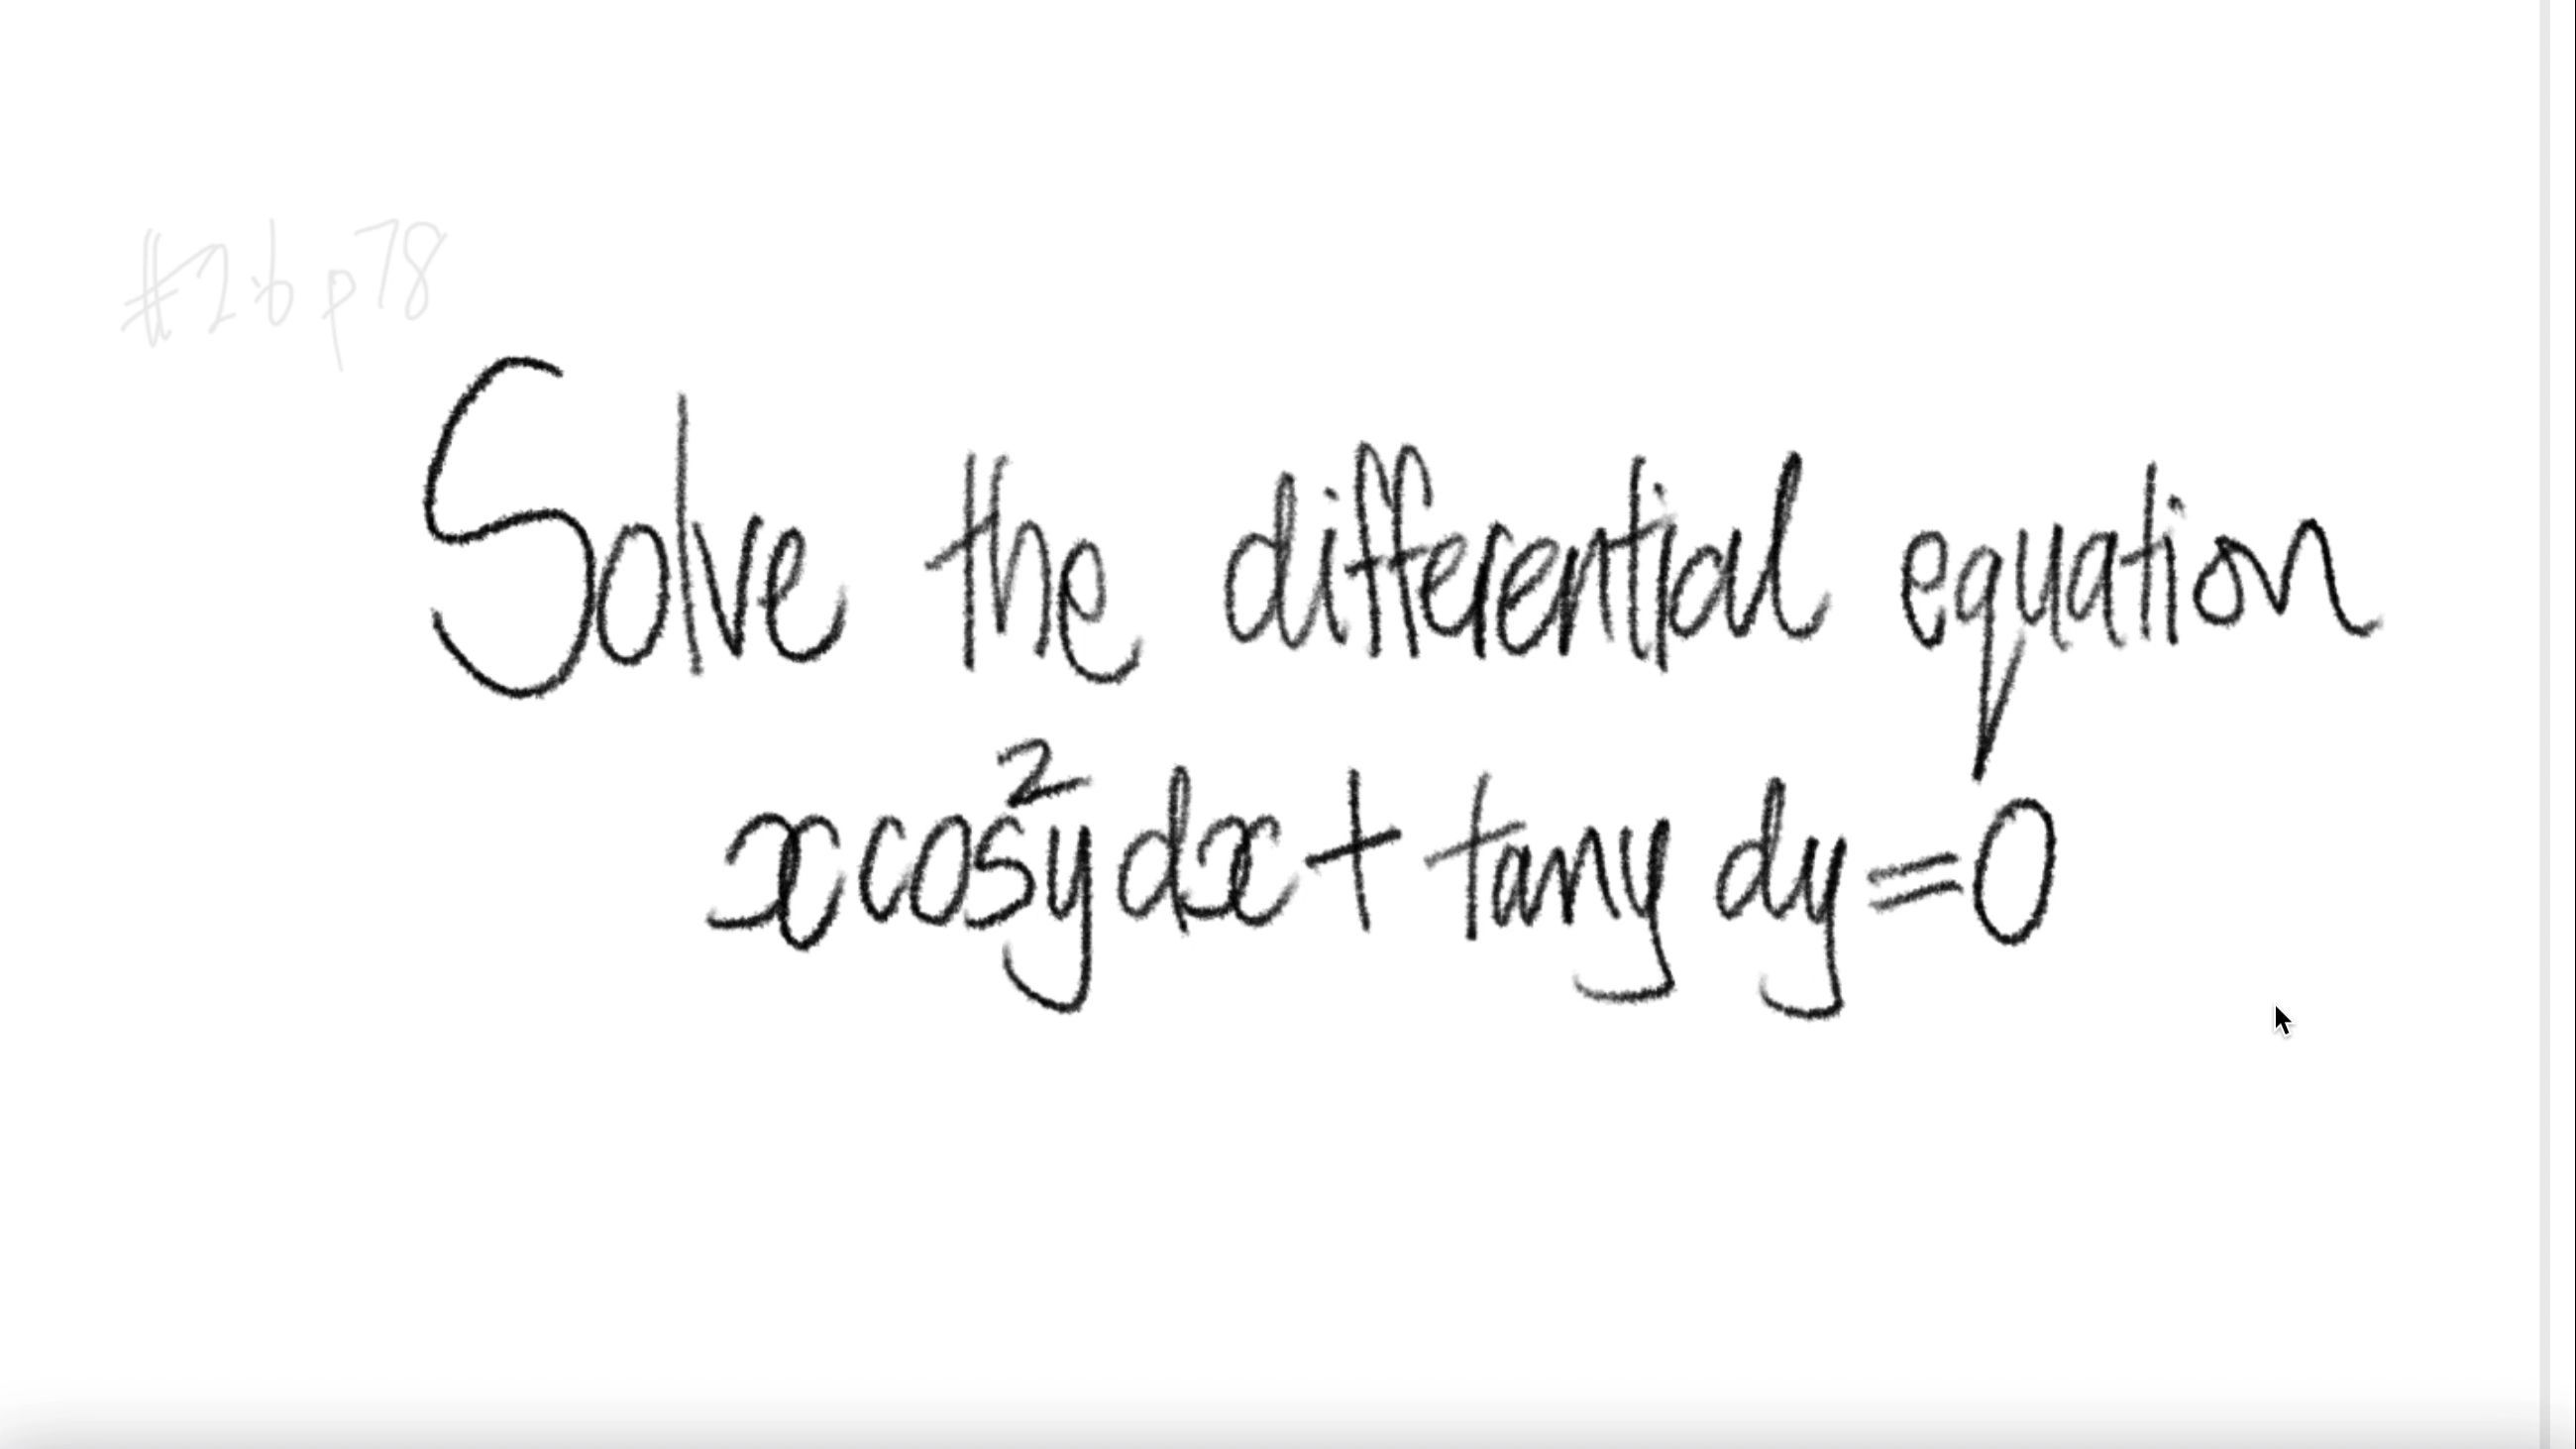 #2.b p78
Solve the differential equation
x cos²y dx + tany dy = 0